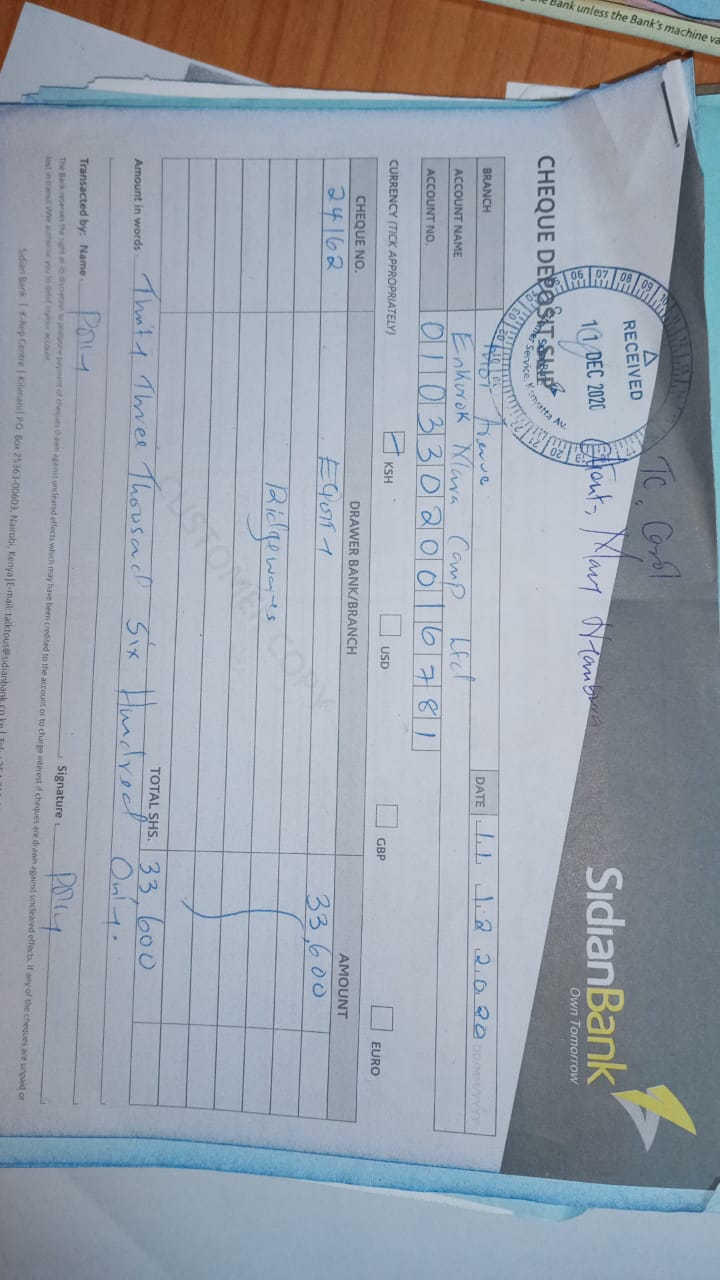 Bank unless the Bank's machine va
TC, Carol
Mary
SidianBank
Own Tomorrow
RECEIVED
11 DEC 2020
CHEQUE DEPOSIT SLIP
BRANCH
DATE 11 12 2020
ACCOUNT NAME Enkorok Mara Camp Ltd
ACCOUNT NO. 01033020016781
CURRENCY (TICK APPROPRIATELY) KSH USD GBP EURO
CHEQUE NO. DRAWER BANK/BRANCH AMOUNT
24162 Equity 33,600
Ridgeways
CUSTOMER COPY
TOTAL SHS. 33,600
Amount in words Thirty Three Thousand Six Hundred Only.
Transacted by: Name Polly Signature Polly
The Bank reserves the right at its discretion to postpone payment of cheques drawn against uncleared effects which may have been credited to the account or to charge interest if cheques are drawn against uncleared effects. If any of the cheques are unpaid or
lost in transit I/We authorise you to debit my/our account.
Sidian Bank | K-Rep Centre | Kilimani | P.O. Box 25363-00603, Nairobi, Kenya | E-mail: talktous@sidianbank.co.ke |